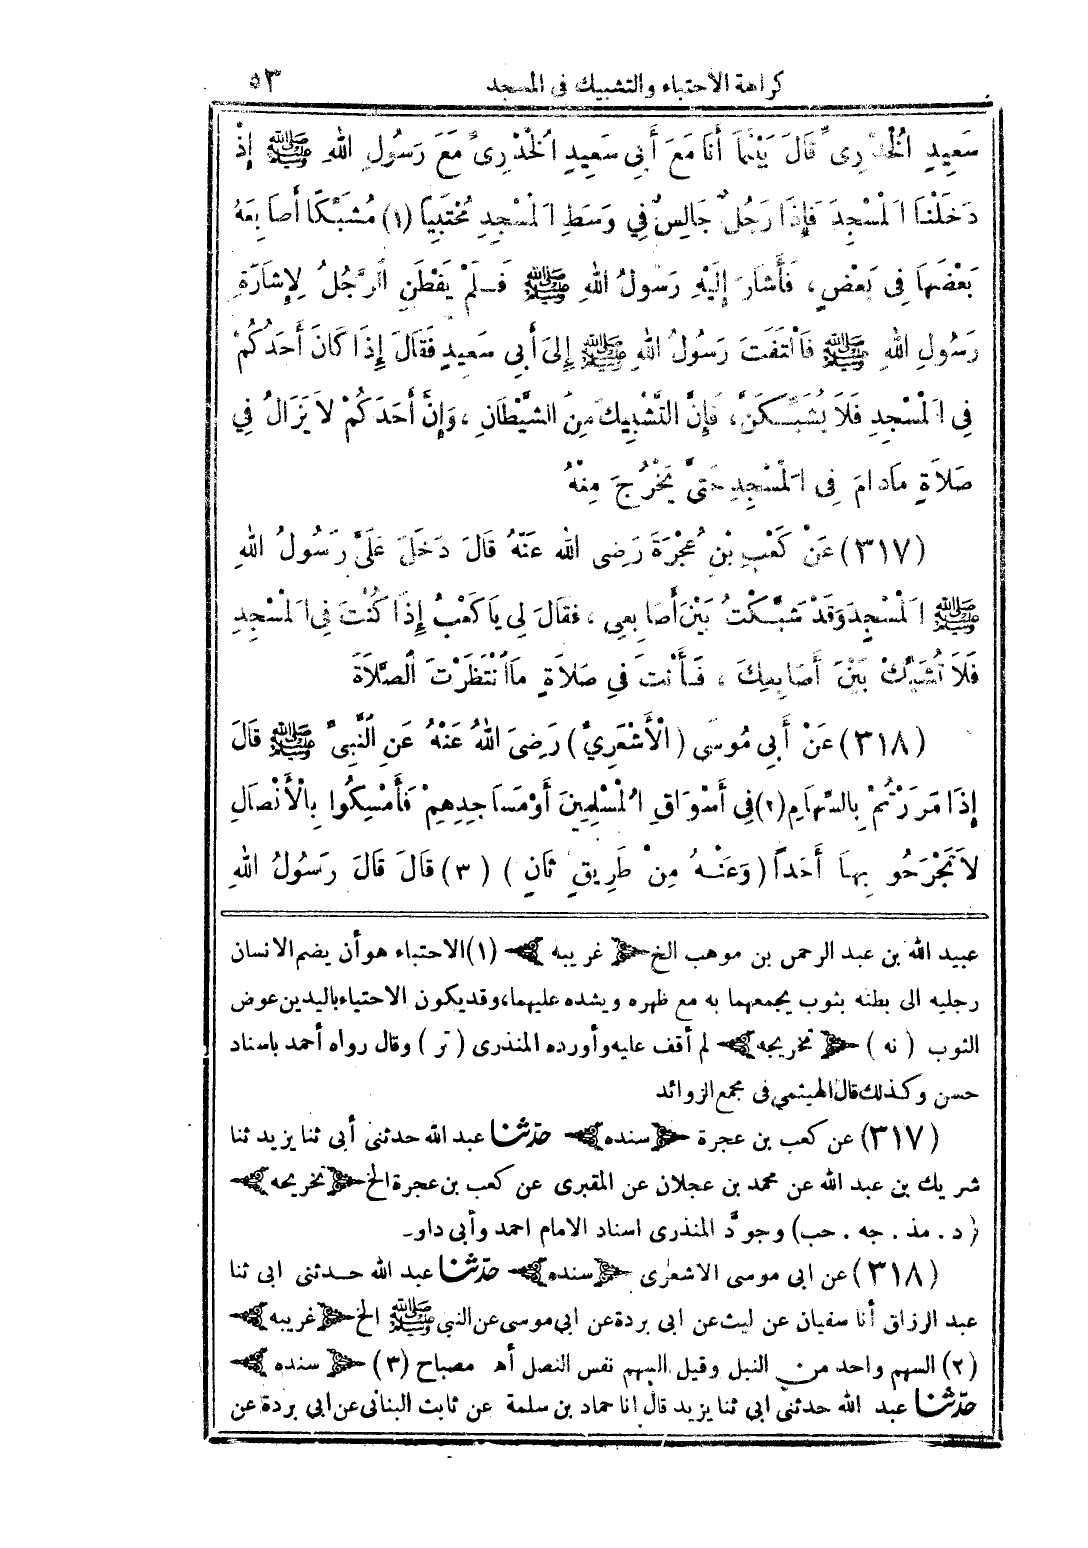 كراهة الاحتباء والتشبيك فى المسجد ٥٣
سَعِيدٍ الْخُدْرِىِّ قَالَ بَيْنَمَا أَنَا مَعَ أَبِى سَعِيدٍ الْخُدْرِىِّ مَعَ رَسُولِ اللهِ ﷺ إِذْ
دَخَلْنَا الْمَسْجِدَ فَإِذَا رَجُلٌ جَالِسٌ فِي وَسَطِ الْمَسْجِدِ مُحْتَبِيًا (١) مُشَبِّكًا أَصَابِعَهُ
بَعْضَهَا فِى بَعْضٍ، فَأَشَارَ إِلَيْهِ رَسُولُ اللهِ ﷺ فَلَمْ يَفْطَنِ الرَّجُلُ لِإِشَارَةِ
رَسُولِ اللهِ ﷺ فَالْتَفَتَ رَسُولُ اللهِ ﷺ إِلَى أَبِى سَعِيدٍ فَقَالَ إِذَا كَانَ أَحَدُكُمْ
فِى الْمَسْجِدِ فَلَا يُشَبِّكَنَّ، فَإِنَّ التَّشْبِيكَ مِنَ الشَّيْطَانِ، وَإِنَّ أَحَدَكُمْ لَا يَزَالُ فِي
صَلَاةٍ مَادَامَ فِى الْمَسْجِدِ حَتَّى يَخْرُجَ مِنْهُ
(٣١٧) عَنْ كَعْبِ بْنِ عُجْرَةَ رَضِى الله عَنْهُ قَالَ دَخَلَ عَلَىَّ رَسُولُ اللهِ
ﷺ الْمَسْجِدَ وَقَدْ شَبَّكْتُ بَيْنَ أَصَابِعِى، فَقَالَ لِى يَا كَعْبُ إِذَا كُنْتَ فِى الْمَسْجِدِ
فَلَا تُشَبِّكْ بَيْنَ أَصَابِعِكَ، فَأَنْتَ فِي صَلَاةٍ مَا انْتَظَرْتَ الصَّلَاةَ
(٣١٨) عَنْ أَبِي مُوسَى (الْأَشْعَرِيِّ) رَضِىَ اللهُ عَنْهُ عَنِ النَّبِىِّ ﷺ قَالَ
إِذَا مَرَرْتُمْ بِالسِّهَامِ (٢) فِي أَسْوَاقِ الْمُسْلِمِينَ أَوْ مَسَاجِدِهِمْ فَأَمْسِكُوا بِالْأَنْصَالِ
لَا تَجْرَحُوا بِهَا أَحَدًا (وَعَنْهُ مِنْ طَرِيقٍ ثَانٍ) (٣) قَالَ قَالَ رَسُولُ اللهِ
عبيد الله بن عبد الرحمن بن موهب الخ ﴿غريبه﴾ (١) الاحتباء هو أن يضم الانسان
رجليه الى بطنه بثوب يجمعهما به مع ظهره ويشده عليهما، وقد يكون الاحتباء باليدين عوض
الثوب (نه) ﴿تخريجه﴾ لم أقف عليه وأورده المنذرى (تر) وقال رواه أحمد باسناد
حسن وكذلك قال الهيثمي فى مجمع الزوائد
(٣١٧) عن كعب بن عجرة ﴿سنده﴾ حدّثنا عبد الله حدثنى أبى ثنا يزيد ثنا
شريك بن عبد الله عن محمد بن عجلان عن المقبرى عن كعب بن عجرة الخ ﴿تخريجه﴾
(د. مذ. جه. حب) وجوَّد المنذرى اسناد الامام احمد وأبى داو
(٣١٨) عن ابى موسى الاشعرى ﴿سنده﴾ حدّثنا عبد الله حدثنى ابى ثنا
عبد الرزاق أنا سفيان عن ليث عن ابى بردة عن ابى موسى عن النبى ﷺ الخ ﴿غريبه﴾
(٢) السهم واحد من النبل وقيل السهم نفس النصل أهـ مصباح (٣) ﴿سنده﴾
حدّثنا عبد الله حدثنى ابى ثنا يزيد قال انا حماد بن سلمة عن ثابت البنانى عن ابى بردة عن